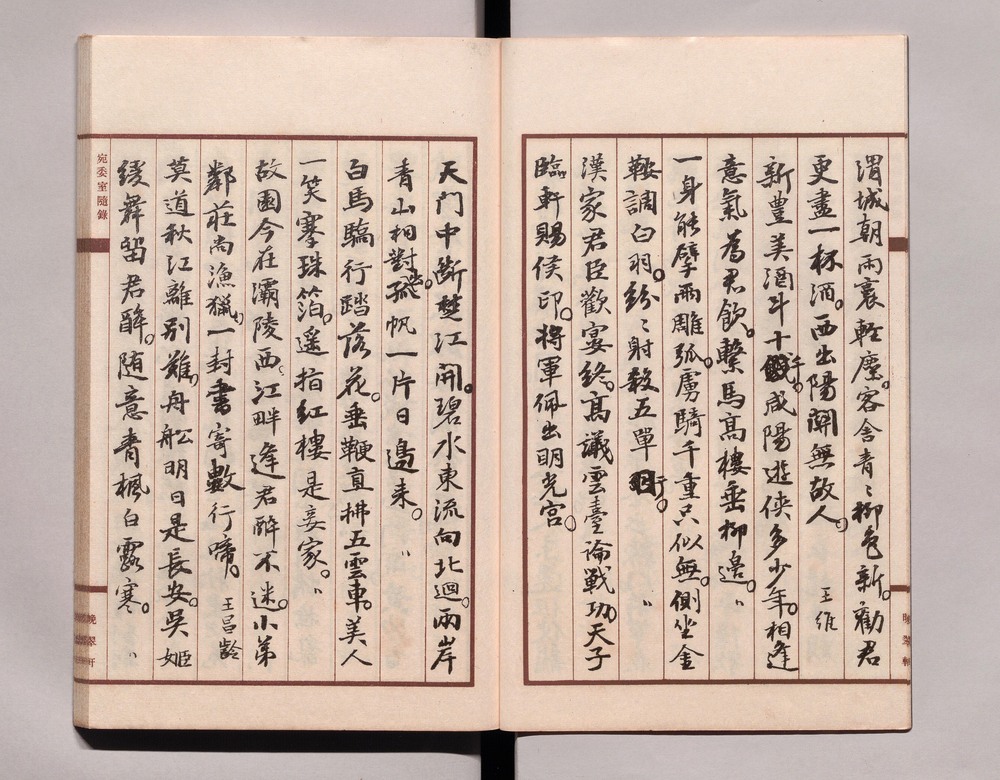 渭城朝雨裛軽塵。客舍青〻柳色新。勸君
更盡一杯酒。西出陽關無故人。 王維
新豊美酒斗十千。咸陽遊俠多少年。相逢
意氣為君飲。繫馬高樓垂柳邉。〃
一身能擘兩雕弧。虜騎千重只似無。側坐金
鞍調白羽。紛〻射殺五單行。〃
漢家君臣歡宴終。高議雲臺論戰功。天子
臨軒賜侯印。將軍佩出明光宮。
天門中斷楚江開。碧水東流向北迴。兩岸
青山相對孤帆一片日邉来。〃
白馬驕行踏落花。垂鞭直拂五雲車。美人
一笑搴珠箔。遥指紅樓是妾家。〃
故園今在灞陵西。江畔逢君醉不迷。小弟
鄰荘尚漁獵。一封書寄數行啼。 王昌齡
莫道秋江離别難。舟舩明日是長安。吳姬
緩舞留君醉。随意青楓白露寒。〃
宛委室隨錄
晚翠軒
晚翠軒